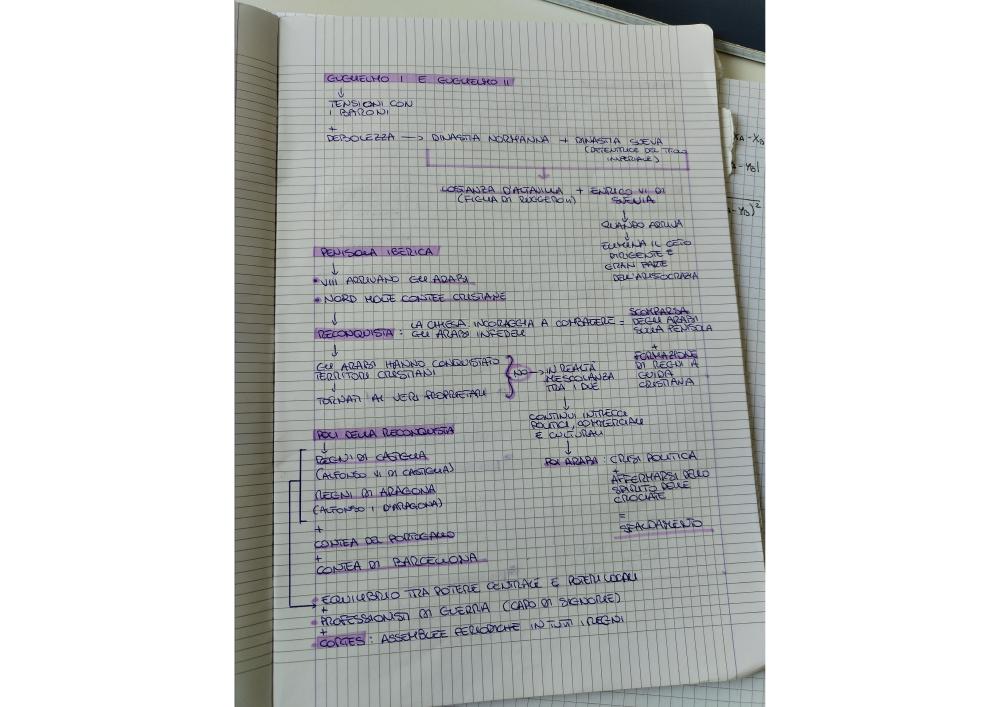 GUGLIELMO I E GUGLIELMO II
↓
TENSIONI CON
I BARONI
+
DEBOLEZZA → DINASTIA NORMANNA + DINASTIA SVEVA
(DETENTRICE DEL TRONO
IMPERIALE)
↓
COSTANZA D'ALTAVILLA + ENRICO VI DI
(FIGLIA DI RUGGERO II) SVEVIA
↓
QUANDO ARRIVA
↓
ELIMINA IL CETO
DIRIGENTE E
GRAN PARTE
DELL'ARISTOCRAZIA
PENISOLA IBERICA
↓
• VIII ARRIVANO GLI ARABI
• NORD MOLTE CONTEE CRISTIANE
↓
RECONQUISTA : LA CHIESA INCORAGGIA A COMBATTERE =
GLI ARABI INFEDELI
SCOMPARSA
DEGLI ARABI
SULLA PENISOLA
+
FORMAZIONE
DI REGNI A
GUIDA
CRISTIANA
↓
GLI ARABI HANNO CONQUISTATO
TERRITORI CRISTIANI
↓
TORNATI AI VERI PROPRIETARI
NO → IN REALTÀ
MESCOLANZA
TRA I DUE
↓
CONTINUI INTRECCI
POLITICI, COMMERCIALI
E CULTURALI
↓
POI ARABI : CRISI POLITICA
+
AFFERMARSI DELLO
SPIRITO DELLE
CROCIATE
=
SFALDAMENTO
POLI DELLA RECONQUISTA
↓
REGNI DI CASTIGLIA
(ALFONSO VI DI CASTIGLIA)
REGNI DI ARAGONA
(ALFONSO I D'ARAGONA)
+
CONTEA DEL PORTOGALLO
+
CONTEA DI BARCELLONA
• EQUILIBRIO TRA POTERE CENTRALE E POTERI LOCALI
+
• PROFESSIONISTI DI GUERRA (CAPO DI SIGNORIE)
+
• CORTES : ASSEMBLEE PERIODICHE IN TUTTI I REGNI